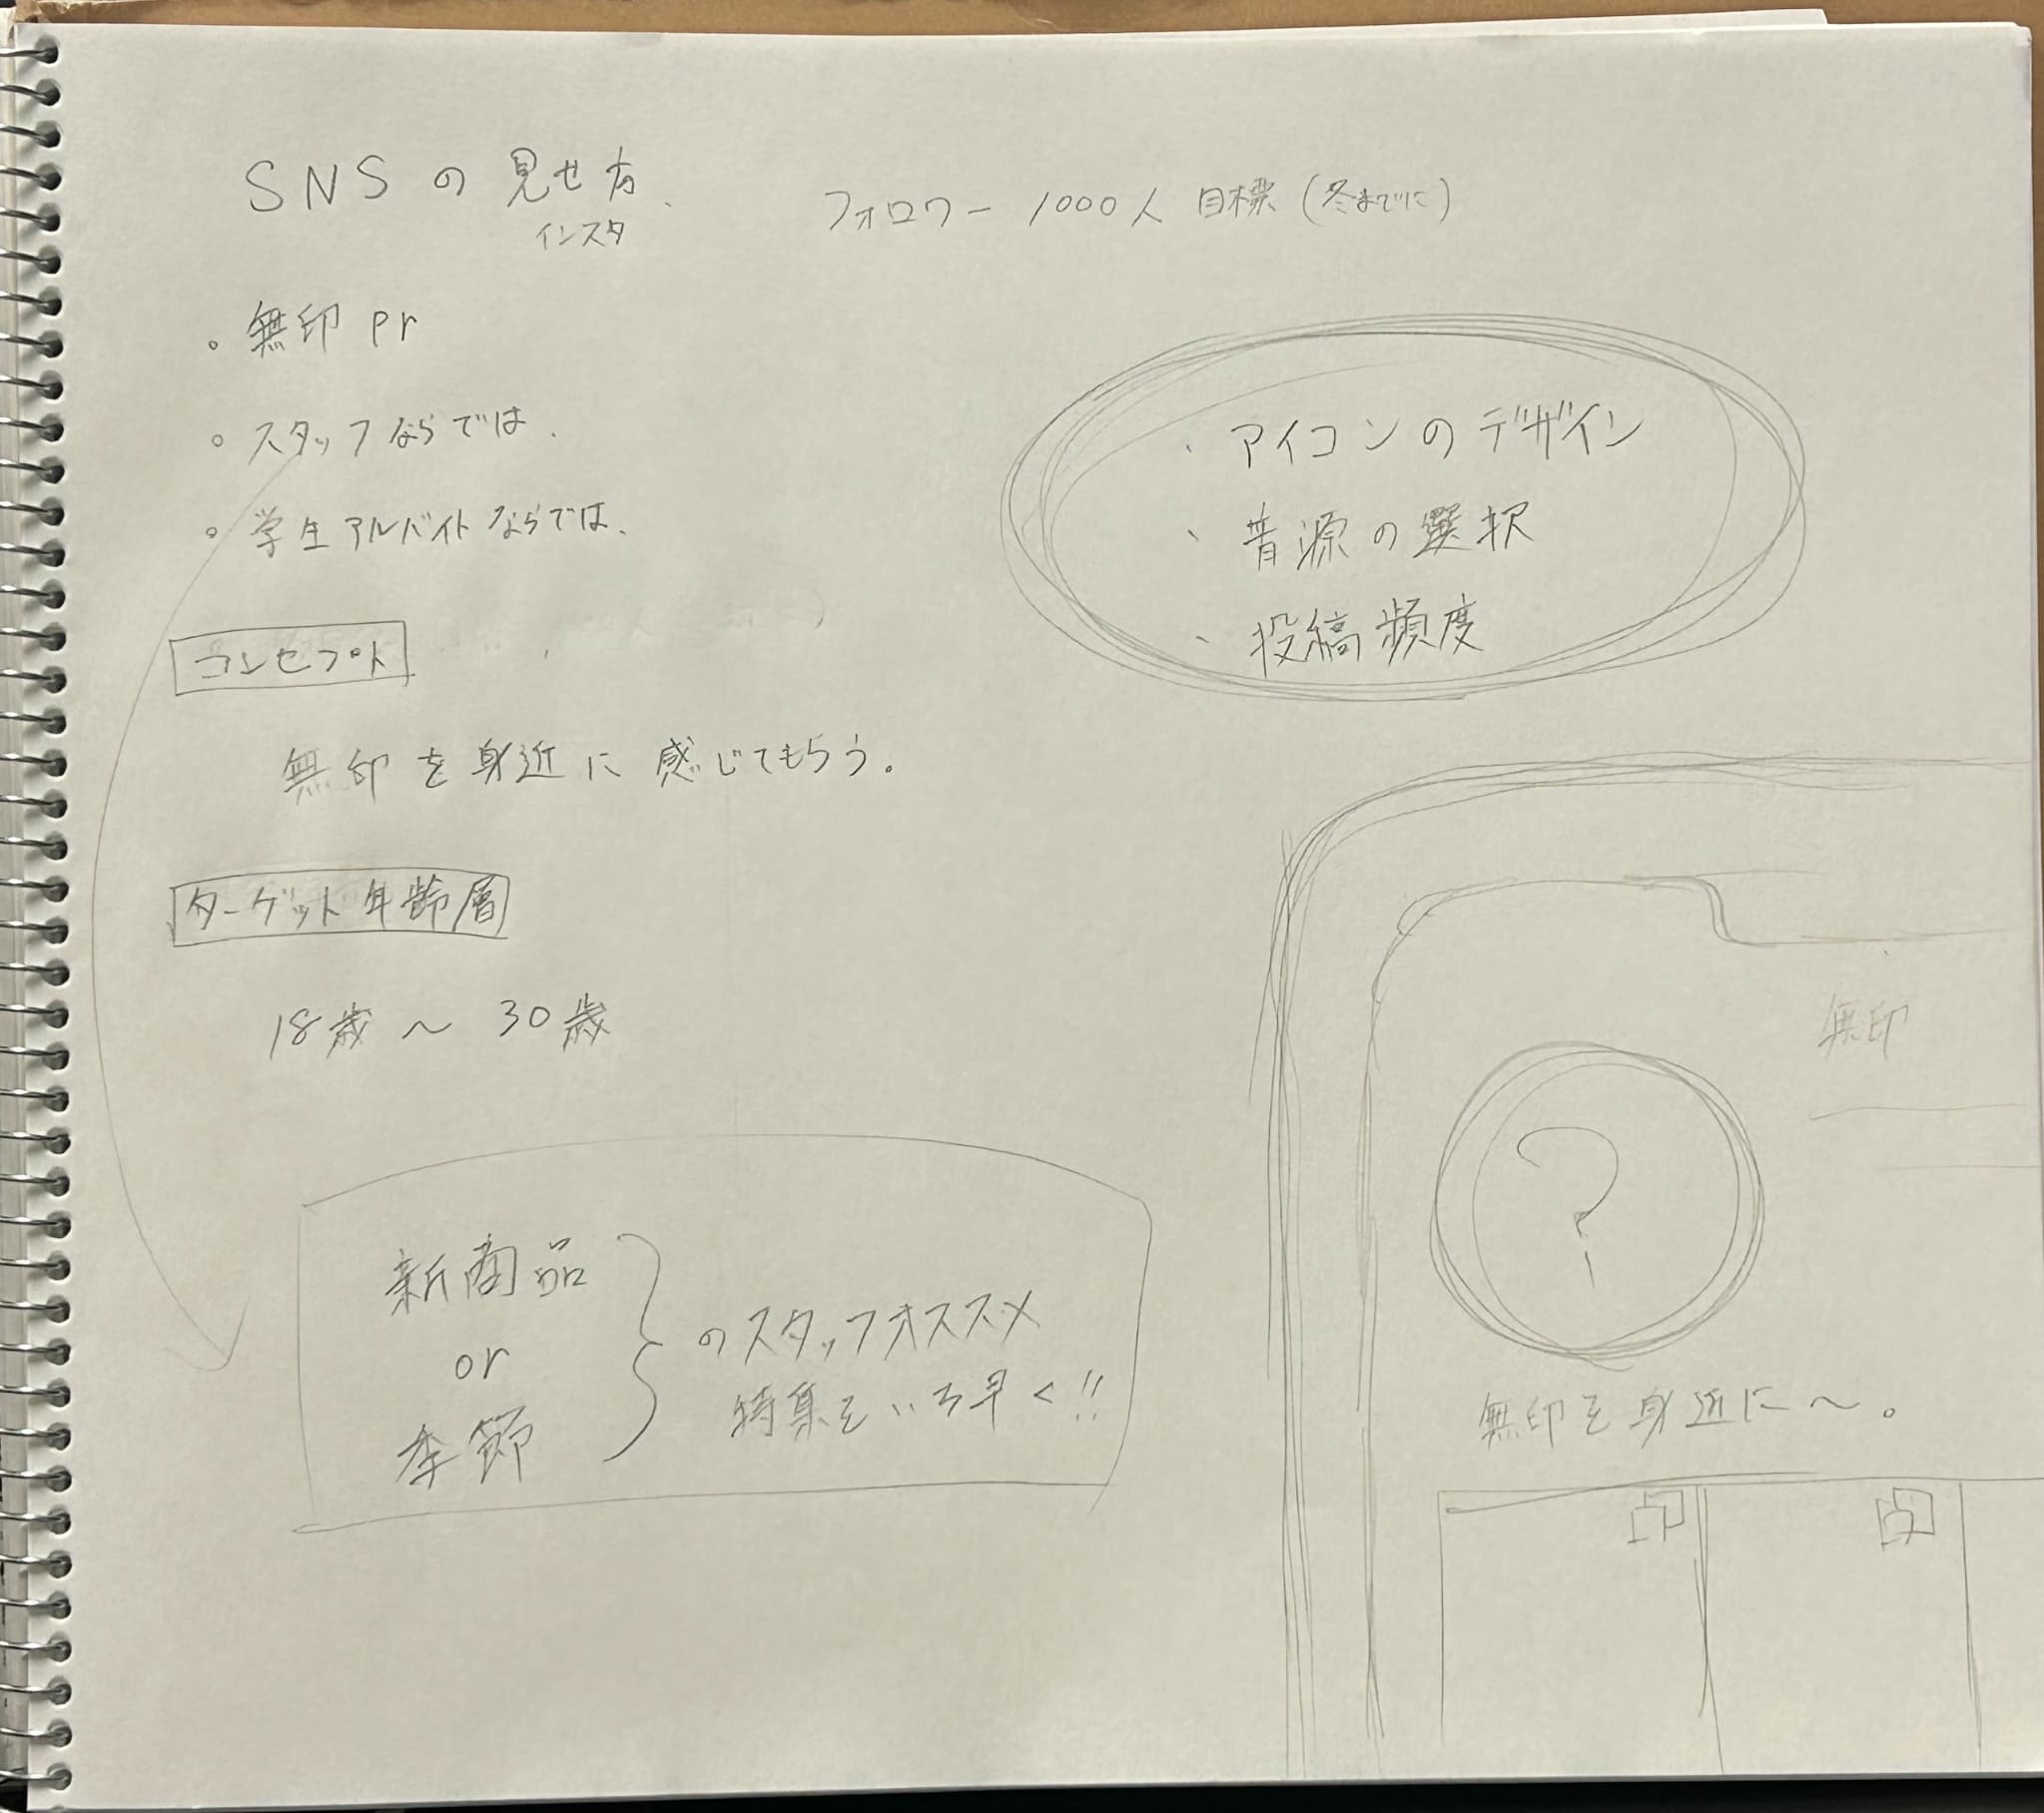 SNSの見せ方.
インスタ
フォロワー 1000人 目標 (冬までに)
。無印 pr
。スタッフならでは.
。学生アルバイトならでは.
・アイコンのデザイン
・音源の選択
・投稿頻度
コンセプト
無印を身近に感じてもらう。
ターゲット年齢層
18歳〜30歳
新商品
or
季節
のスタッフオススメ
特集をいち早く!!
無印
?
無印を身近に〜。